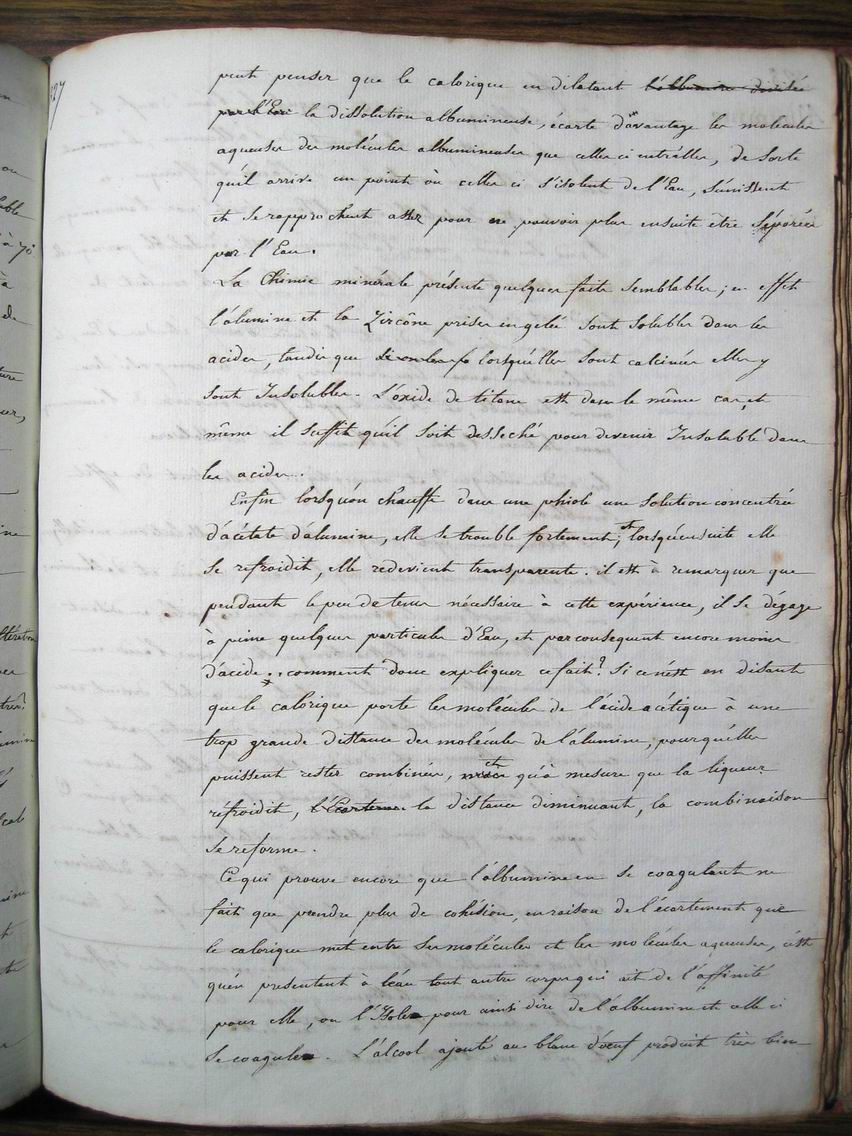 327
peut penser que le calorique en dilatant l'albumine divisée
par l'Eau la dissolution albumineuse, écarte davantage les molecules
aqueuses des molécules albumineuses que celles ci entr'elles, de sorte
qu'il arrive un point où celles ci s'isolent de l'Eau, s'unissent
et se rapprochent assez pour ne pouvoir plus ensuite etre séparées
par l'Eau.
La Chimie minérale présente quelques faits semblables; en effet
l'alumine et la Zircône prises en gelée sont solubles dans les
acides, tandis que lorsqu'elles sont calcinées elles y
sont Insolubles. L'oxide de titane est dans le même cas, et
même il suffit qu'il soit desseché pour devenir Insoluble dans
les acides.
Enfin lorsqu'on chauffe dans une phiole une solution concentrée
d'acétate d'alumine, elle se trouble fortement, et lorsqu'ensuite elle
se refroidit, elle redevient transparente. il est à remarquer que
pendant le peu de tems nécessaire à cette expérience, il se dégage
à peine quelques particules d'Eau, et par consequent encore moins
d'acide. comment donc expliquer ce fait? Si ce n'est en disant
que le calorique porte les molécules de l'acide acétique à une
trop grande distance des molécules de l'alumine, pour qu'elles
puissent rester combinées, et qu'à mesure que la liqueur
refroidit, l'Ecartement la distance diminuant, la combinaison
se reforme.
Ce qui prouve encore que l'albumine en se coagulant ne
fait que prendre plus de cohésion, en raison de l'écartement que
le calorique met entre ses molécules et les molécules aqueuses, c'est
qu'en presentant à l'eau tout autre corps qui ait de l'affinité
pour elle, on l'Isole pour ainsi dire de l'albumine et celle ci
se coagule. L'alcool ajouté au blanc d'oeuf produit très bien